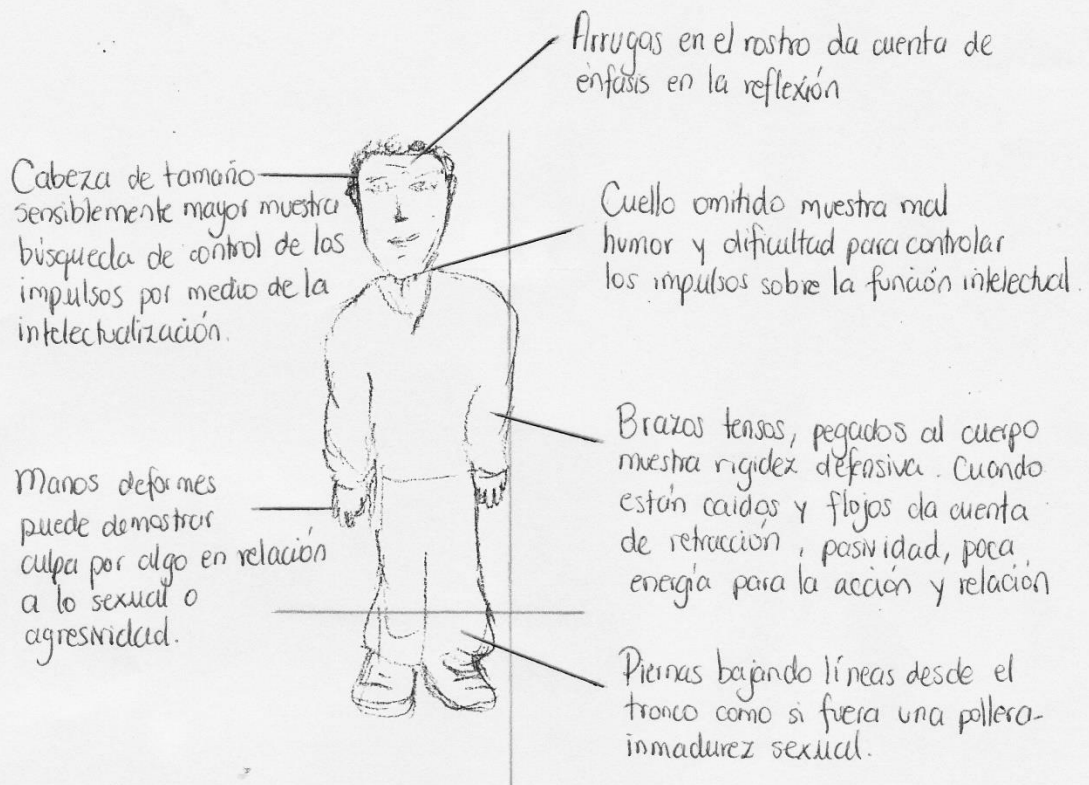 Arrugas en el rostro da cuenta de
énfasis en la reflexión
Cabeza de tamaño
sensiblemente mayor muestra
búsqueda de control de los
impulsos por medio de la
intelectualización.
Cuello omitido muestra mal
humor y dificultad para controlar
los impulsos sobre la función intelectual.
Brazos tensos, pegados al cuerpo
muestra rigidez defensiva. Cuando
están caidos y flojos da cuenta
de retracción, pasividad, poca
energía para la acción y relación
Manos deformes
puede demostrar
culpa por algo en relación
a lo sexual o
agresividad.
Piernas bajando líneas desde el
tronco como si fuera una pollera-
inmadurez sexual.